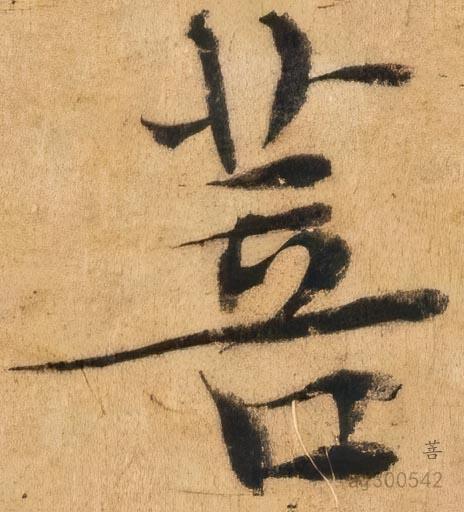 菩
菩
ag300542